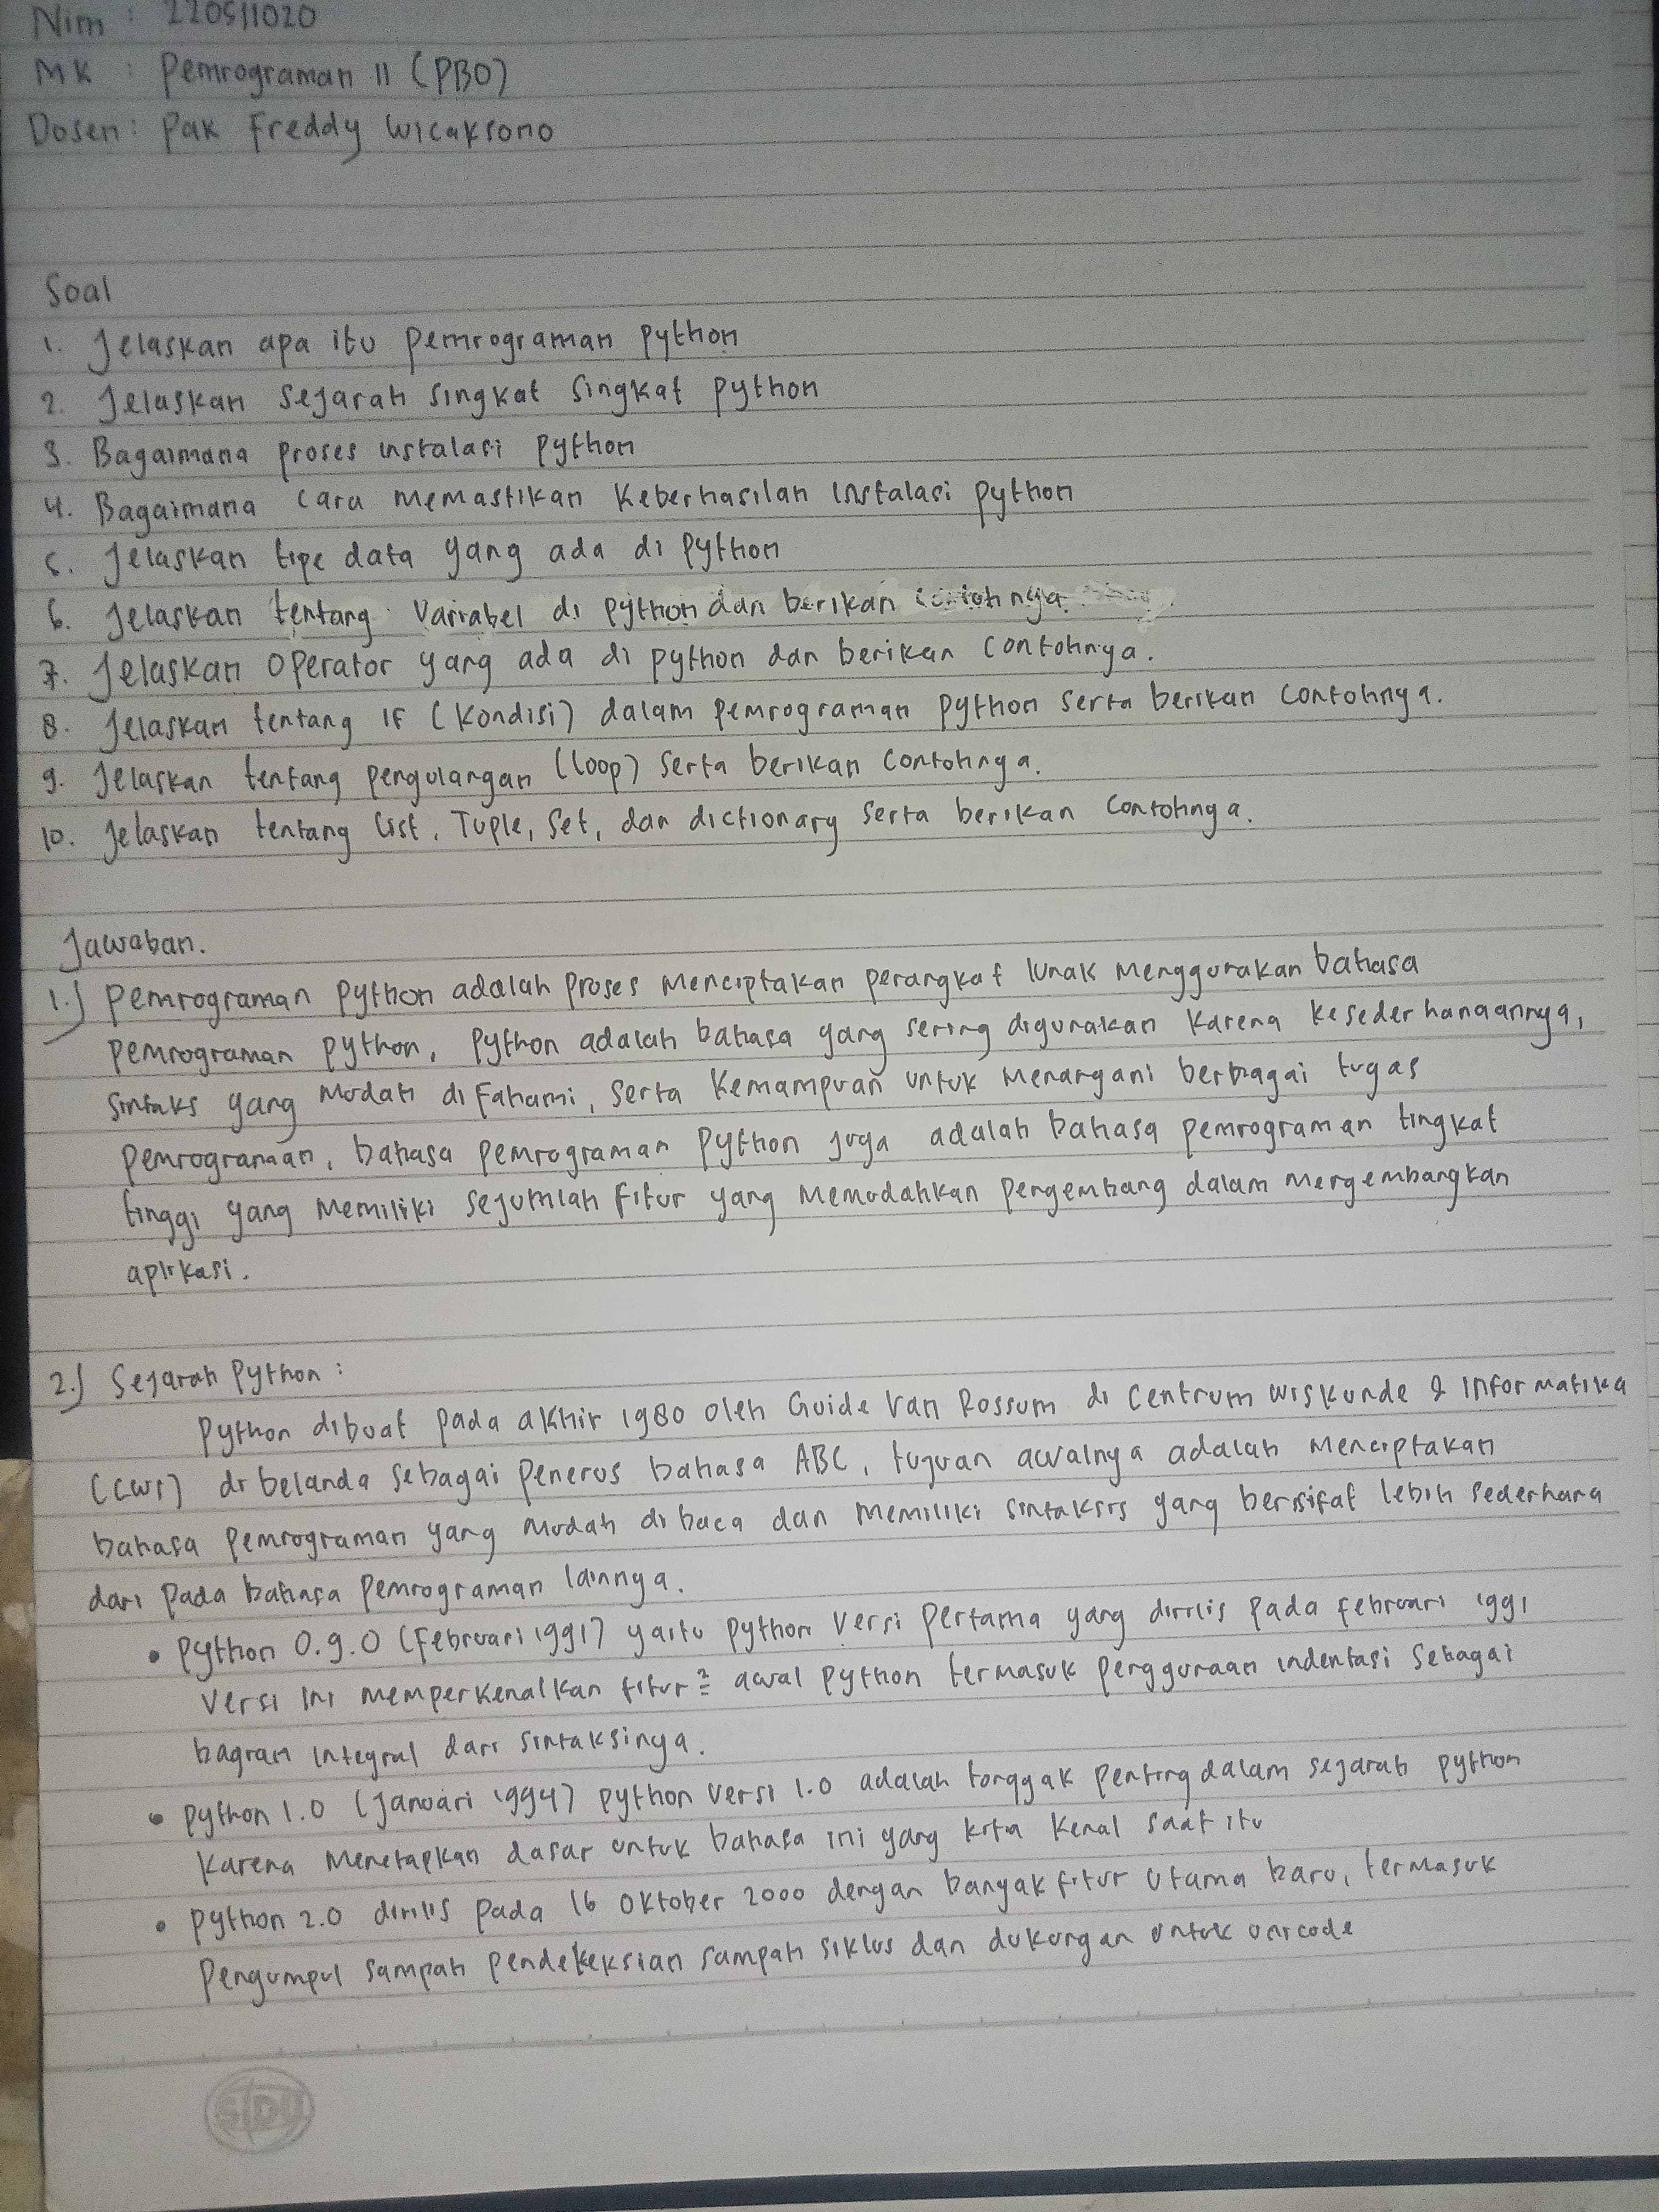 Nim : 220511020
MK : Pemrograman II (PBO)
Dosen : Pak Freddy Wicaksono
Soal
1. Jelaskan apa itu pemrograman python
2. Jelaskan sejarah singkat singkat python
3. Bagaimana proses instalasi python
4. Bagaimana cara memastikan keberhasilan instalasi python
5. Jelaskan tipe data yang ada di python
6. Jelaskan tentang variabel di python dan berikan contohnya.
7. Jelaskan operator yang ada di python dan berikan contohnya.
8. Jelaskan tentang IF (kondisi) dalam pemrograman python serta berikan contohnya.
9. Jelaskan tentang pengulangan (loop) serta berikan contohnya.
10. Jelaskan tentang list, Tuple, Set, dan dictionary serta berikan contohnya.
Jawaban.
1.) Pemrograman python adalah proses menciptakan perangkat lunak menggunakan bahasa
pemrograman python, python adalah bahasa yang sering digunakan karena kesederhanaannya,
sintaks yang mudah di fahami, serta kemampuan untuk menangani berbagai tugas
pemrograman, bahasa pemrograman python juga adalah bahasa pemrograman tingkat
tinggi yang memiliki sejumlah fitur yang memudahkan pengembang dalam mengembangkan
aplikasi.
2.) Sejarah Python :
Python dibuat pada akhir 1980 oleh Guide Van Rossum di Centrum wiskunde & informatika
(CWI) di belanda sebagai penerus bahasa ABC, tujuan awalnya adalah menciptakan
bahasa pemrograman yang mudah di baca dan memiliki sintaksis yang bersifat lebih sederhana
dari pada bahasa pemrograman lainnya.
• Python 0.9.0 (Februari 1991) yaitu python versi pertama yang dirilis pada februari 1991
versi ini memperkenalkan fitur² awal python termasuk penggunaan indentasi sebagai
bagian integral dari sintaksinya.
• Python 1.0 (Januari 1994) python versi 1.0 adalah tonggak penting dalam sejarah python
karena menetapkan dasar untuk bahasa ini yang kita kenal saat itu
• Python 2.0 dirilis pada 16 Oktober 2000 dengan banyak fitur utama baru, termasuk
Pengumpul sampah pendeteksian sampah siklus dan dukungan untuk unicode
SIDU